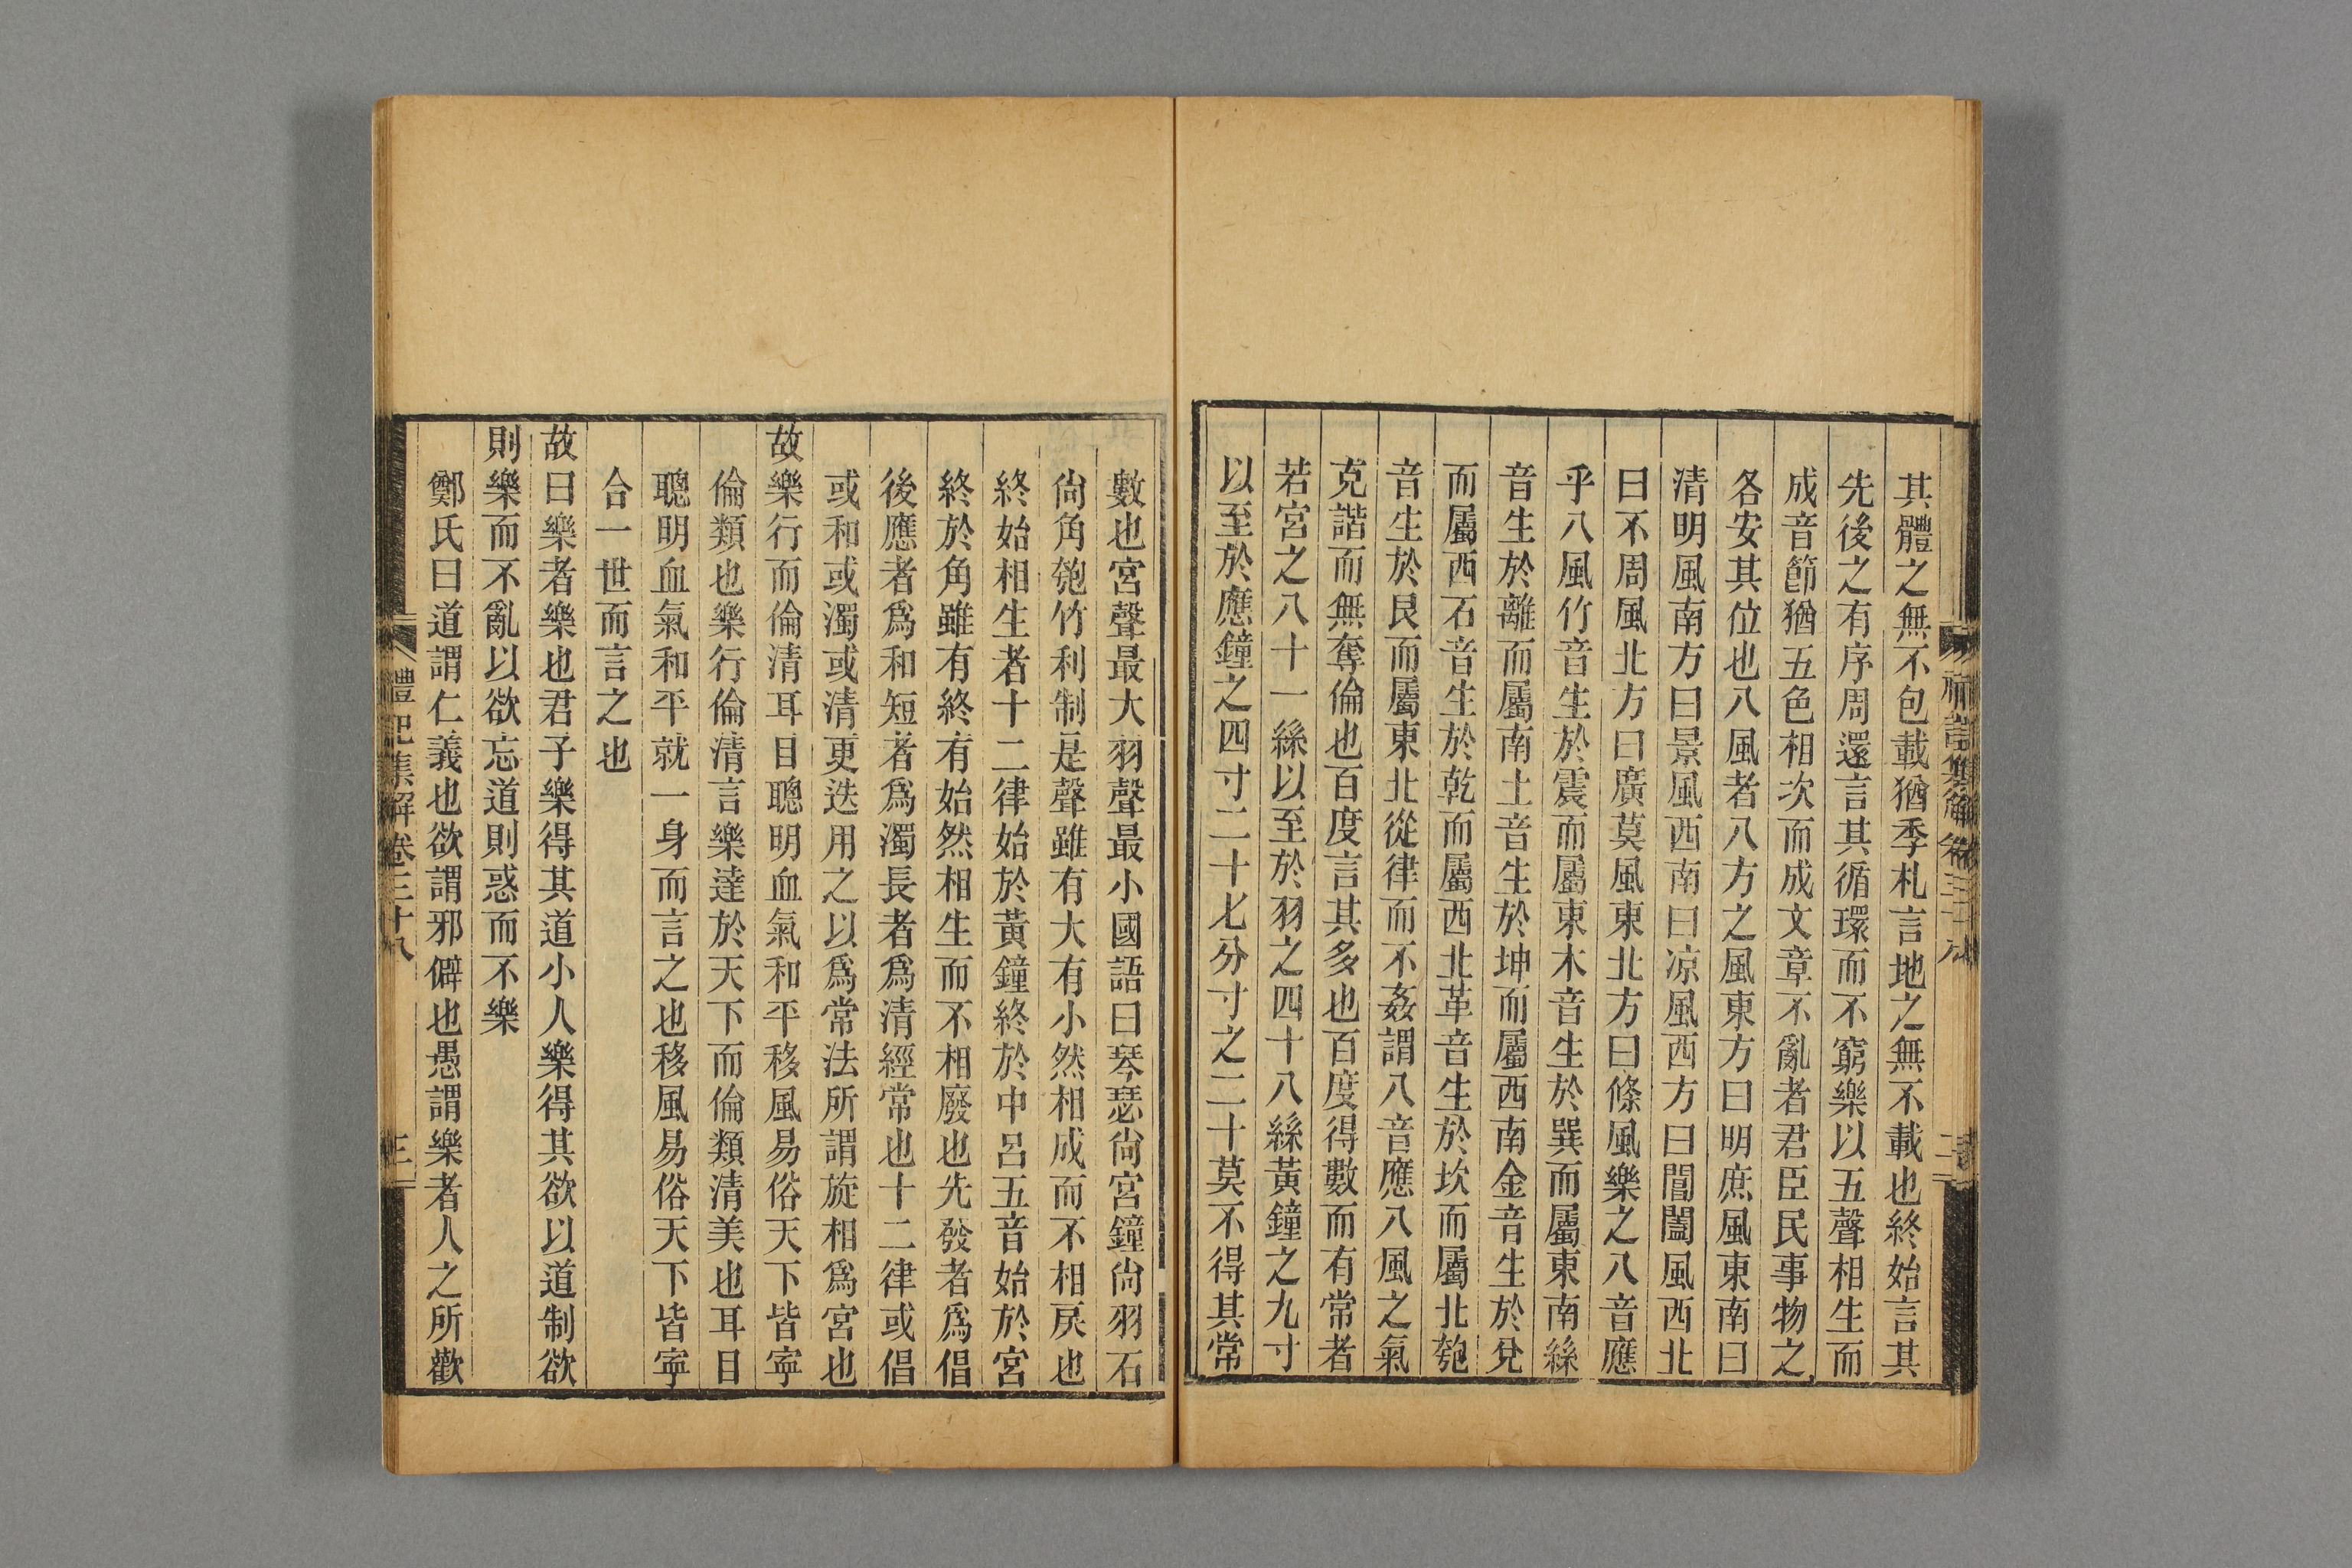 其體之無不包載猶季札言地之無不載也終始言其
先後之有序周還言其循環而不窮樂以五聲相生而
成音節猶五色相次而成文章不亂者君臣民事物之
各安其位也八風者八方之風東方曰明庶風東南曰
清明風南方曰景風西南曰凉風西方曰閶闔風西北
曰不周風北方曰廣莫風東北方曰條風樂之八音應
乎八風竹音生於震而屬東木音生於巽而屬東南絲
音生於離而屬南土音生於坤而屬西南金音生於兌
而屬西石音生於乾而屬西北革音生於坎而屬北匏
音生於艮而屬東北從律而不姦謂八音應八風之氣
克諧而無奪倫也百度言其多也百度得數而有常者
若宮之八十一絲以至於羽之四十八絲黃鐘之九寸
以至於應鐘之四寸二十七分寸之二十莫不得其常
數也宮聲最大羽聲最小國語曰琴瑟尙宮鐘尙羽石
尙角匏竹利制是聲雖有大有小然相成而不相戾也
終始相生者十二律始於黃鐘終於中呂五音始於宮
終於角雖有終有始然相生而不相廢也先發者爲倡
後應者爲和短者爲濁長者爲清經常也十二律或倡
或和或濁或清更迭用之以爲常法所謂旋相爲宮也
故樂行而倫清耳目聰明血氣和平移風易俗天下皆寧
倫類也樂行倫清言樂達於天下而倫類清美也耳目
聰明血氣和平就一身而言之也移風易俗天下皆寧
合一世而言之也
故曰樂者樂也君子樂得其道小人樂得其欲以道制欲
則樂而不亂以欲忘道則惑而不樂
鄭氏曰道謂仁義也欲謂邪僻也愚謂樂者人之所歡
禮記集解卷三十八
三